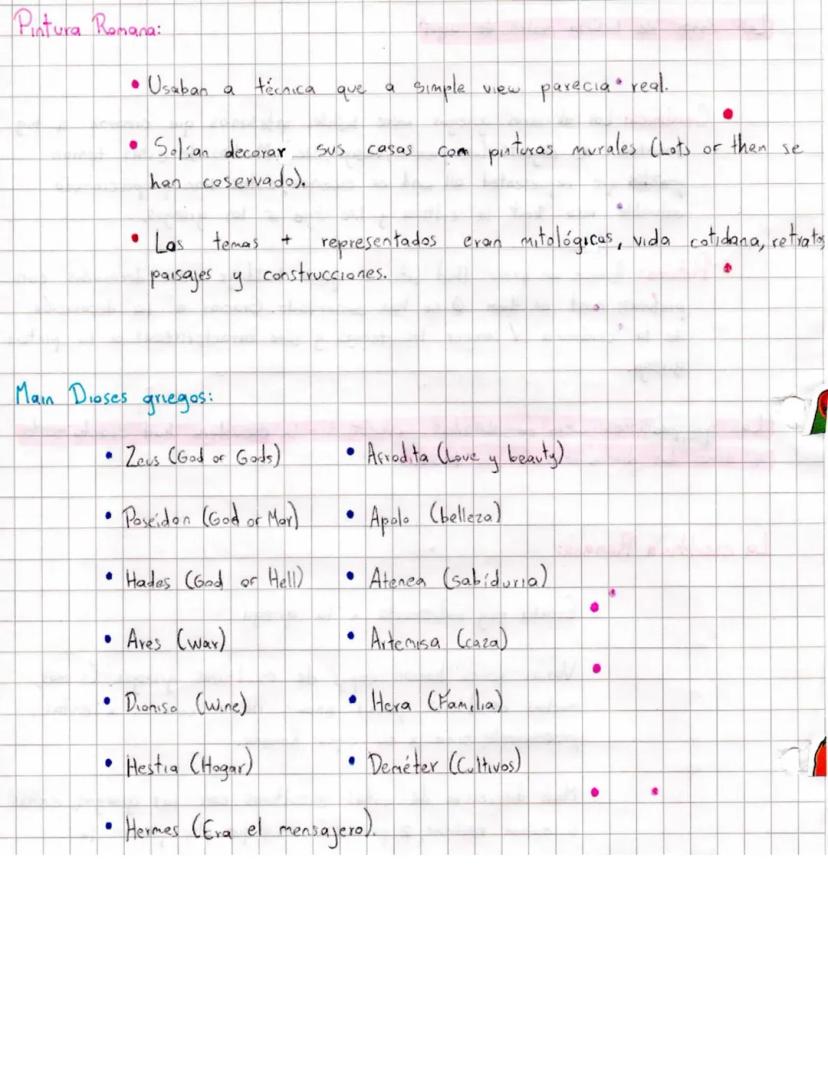 Pintura Romana:
• Usaban a técnica que a simple view parecia real.
• Solian decorar sus casas com pinturas murales (Lots of then se
han coservado).
• Los temas + representados eran mitológicos, vida cotidana, retratos,
paisajes y construcciones.
Main Dioses griegos:
• Zeus (God of Gods) • Afrodita (Love y beauty)
• Poseidon (God of Mar) • Apolo (belleza)
• Hades (God of Hell) • Atenea (sabiduria)
• Ares (war) • Artemisa (caza)
• Dioniso (Wine) • Hera (Familia)
• Hestia (Hogar) • Deméter (Cultivos)
• Hermes (Era el mensajero).